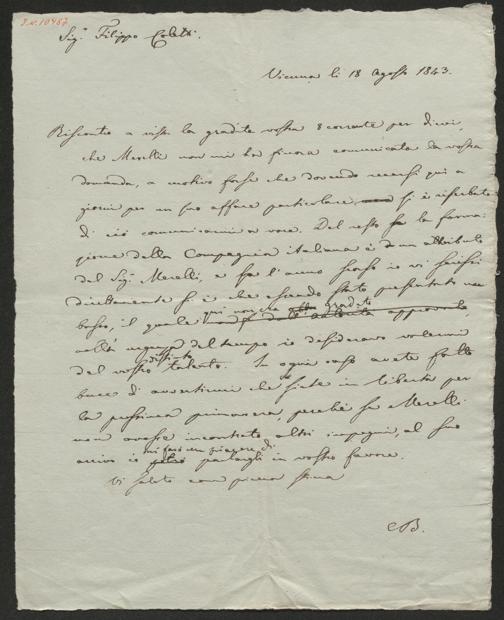 I.N. 10467
Sig.r Filippo Coletti.
Vienna li 18 Agosto 1843.
Riscontro a vista la gradita vostra 8 corrente per dirvi,
che Merelli non mi ha finora comunicata la vostra
domanda, a motivo forse che dovendo recarsi qui a
giorni per un suo affare particolare, si è riserbato
di ciò comunicarmi a voce. Del resto la forma-
zione della Compagnia italiana è di un attributo
del Sig.r Merelli, e se l'anno scorso io vi scrissi
direttamente si è che essendo stato presentato un
basso, il quale
qui non era gradito
nell' urgenza del tempo io desideravo valermi
del vostro distinto talento. In ogni caso avete fatto
bene di avvertirmi che siete in libertà per
la prossima primavera, perché se Merelli
non avesse incontrato altri impegni, al suo
arrivo io mi farò un piacere di parlargli in vostro favore.
Vi saluto con piena stima
B.